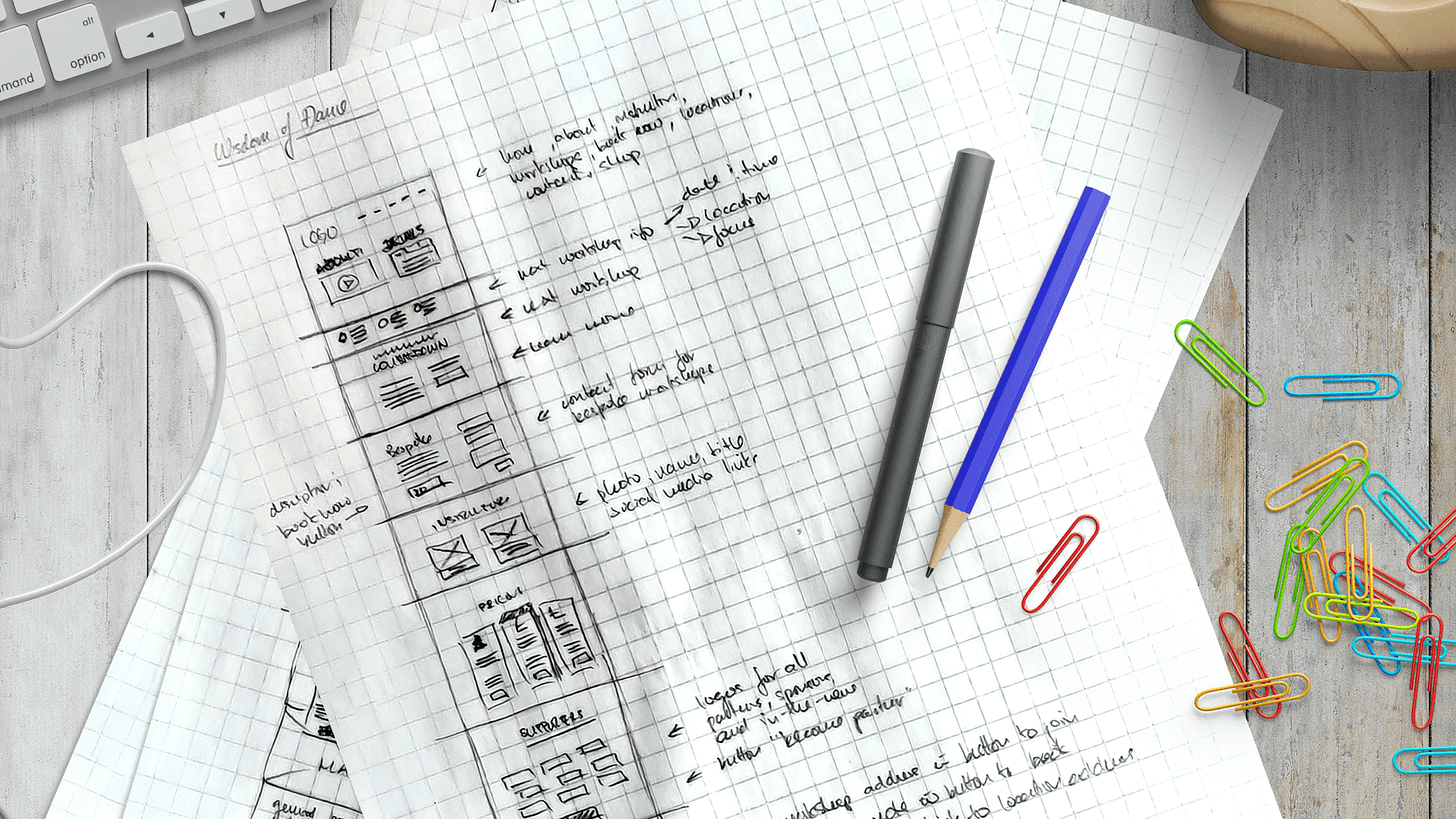 alt
option
mand
Wisdom of Dance
home, about, instructors,
workshops, book now, locations,
contact, shop
LOGO
ABOUT
DETAILS
next workshop info
date & time
location
focus
next workshop
learn more
COUNTDOWN
contact form for
bespoke workshops
Bespoke
description;
book now
button
photo, name, title
social media links
INSTRUCTORS
PRICING
logos for all
partners, sponsors,
and in-the-news
button "become partner"
SUPPORTERS
workshop address button to join
button to book
to location address
MA
general